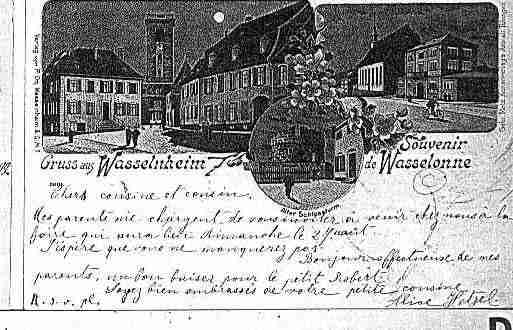 Gruss aus Wasselnheim
Souvenir
de Wasselonne
Alter Schlossturm
Chers cousine et cousin.
Mes parents me chargent de vous inviter à venir chez nous à la
foire qui aura lieu dimanche le 27 août.
J'espère que vous ne manquerez pas.
Bonjour affectueuse de mes
parents, un bon baiser pour le petit Robert.
Soyez bien embrassés de votre petite cousine
R. s. v. pl.
Alice